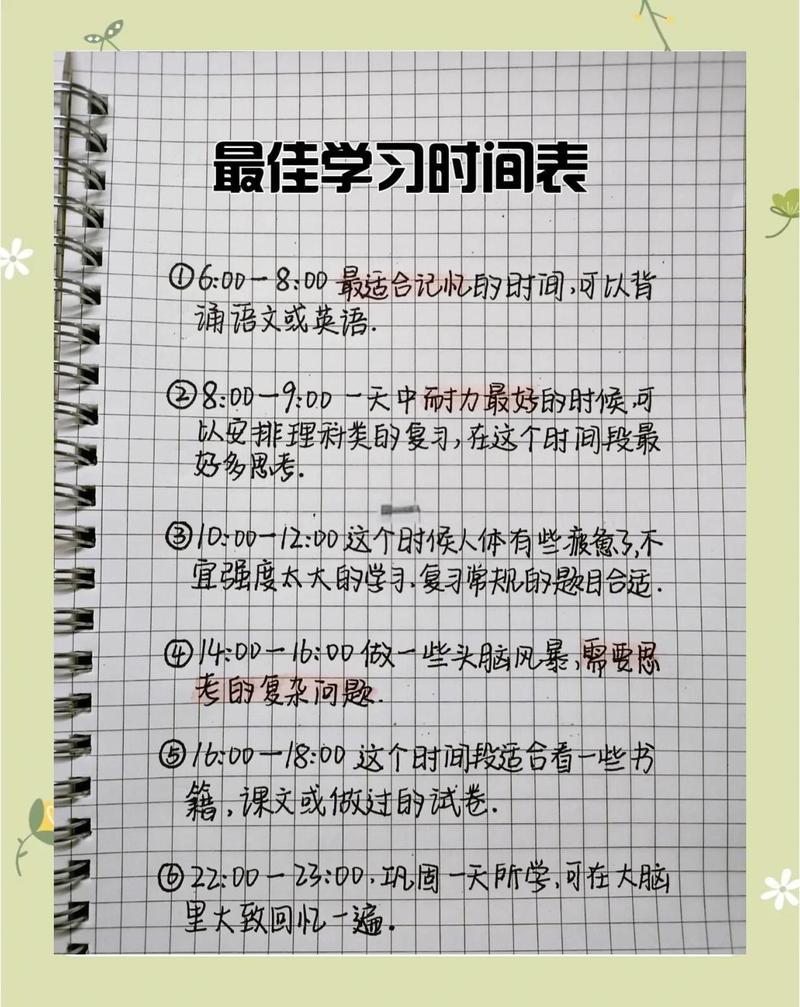 最佳学习时间表
①6:00—8:00 最适合记忆的时间,可以背
诵语文或英语.
②8:00—9:00 一天中耐力最好的时候,可
以安排理科类的复习,在这个时间段最
好多思考.
③10:00—12:00 这个时候人体有些疲惫了,不
宜强度太大的学习.复习常规的题目合适.
④14:00—16:00 做一些头脑风暴,需要思
考的复杂问题.
⑤16:00—18:00 这个时间段适合看一些书
籍,课文或做过的试卷.
⑥22:00—23:00.巩固一天所学,可在大脑
里大致回忆一遍.